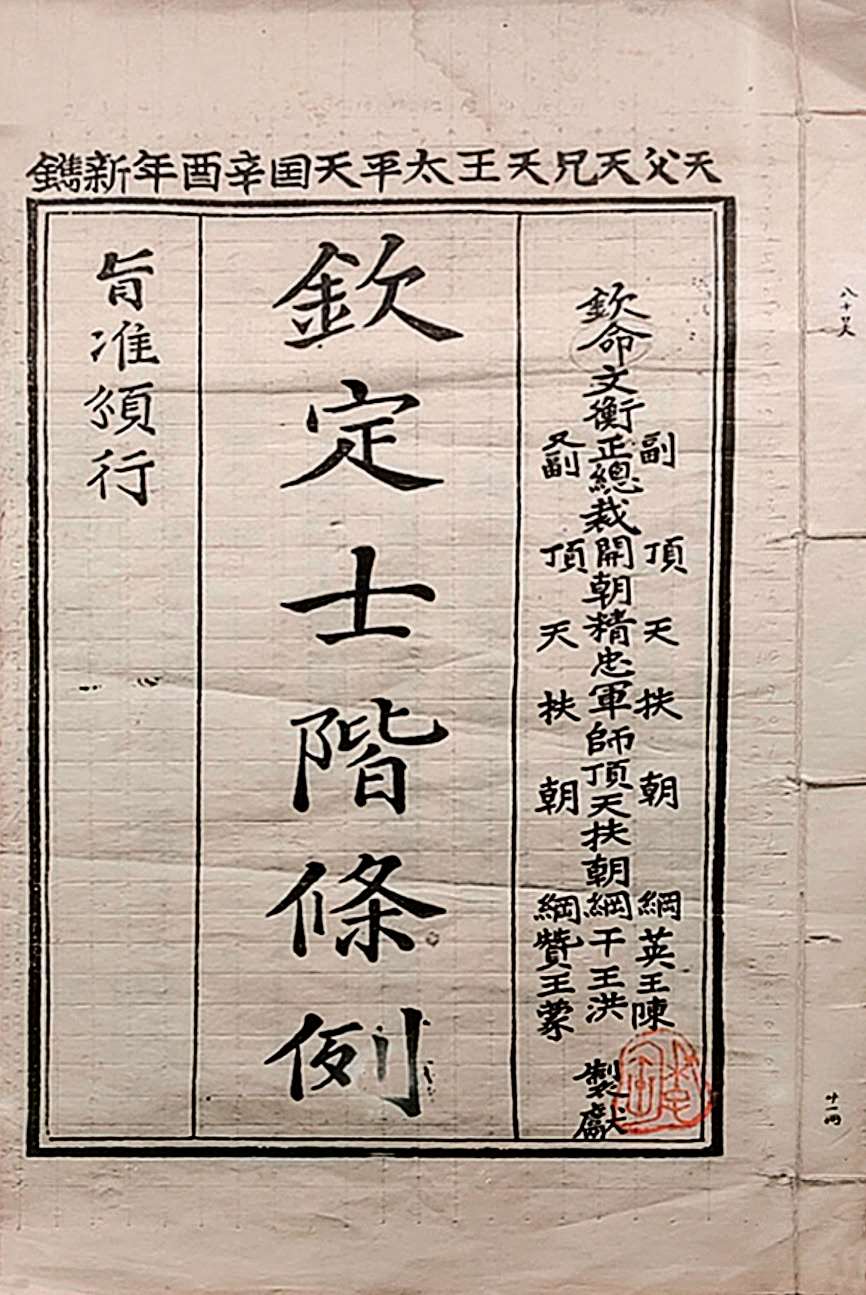 天父天兄天王太平天囯辛酉年新鐫
副頂天扶朝綱英王陳
欽命文衡正總裁開朝精忠軍師頂天扶朝綱干王洪製獻
又副頂天扶朝綱贊王蒙
欽定士階條例
旨准頒行